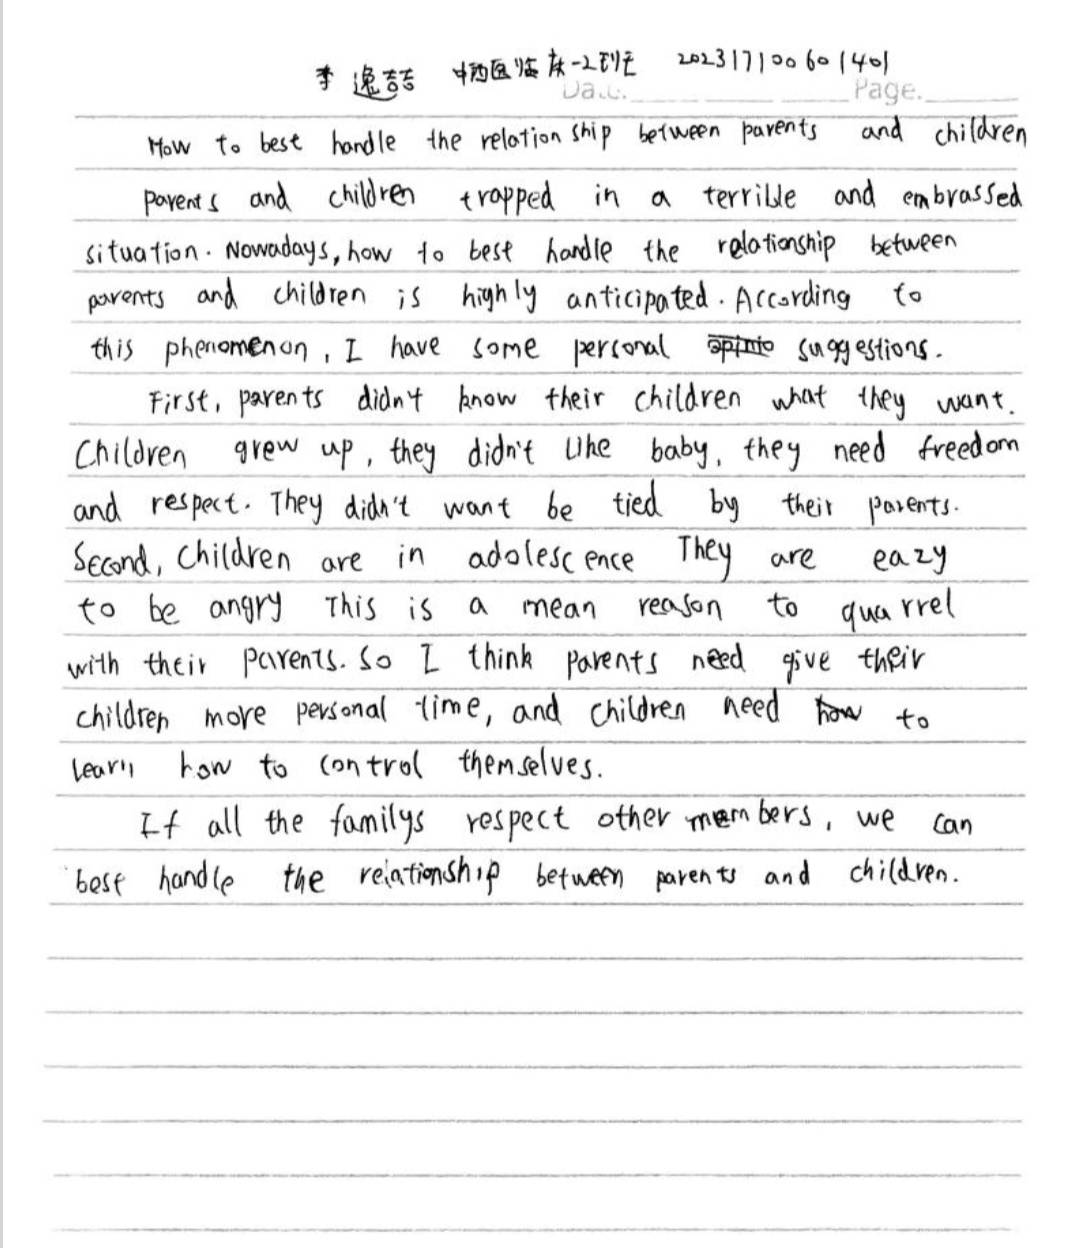 李逸喆 中西医临床-2班 202317100601401
Da... Page.
How to best handle the relationship between parents and children
Parents and children trapped in a terrible and embrassed
situation. Nowadays, how to best handle the relationship between
parents and children is highly anticipated. According to
this phenomenon, I have some personal suggestions.
First, parents didn't know their children what they want.
Children grew up, they didn't like baby, they need freedom
and respect. They didn't want be tied by their parents.
Second, Children are in adolescence They are eazy
to be angry This is a mean reason to quarrel
with their parents. So I think parents need give their
children more personal time, and children need to
learn how to control themselves.
If all the familys respect other members, we can
best handle the relationship between parents and children.